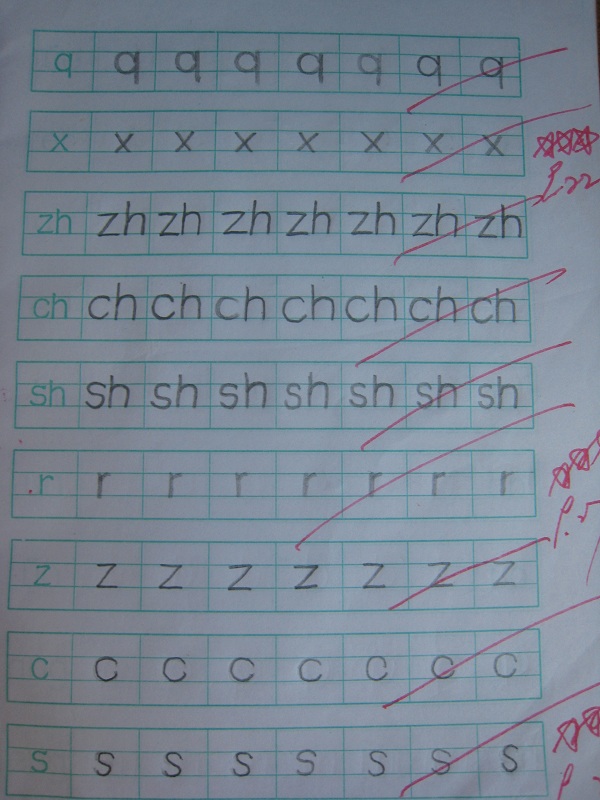 q q q q q q q q
x x x x x x x x
zh zh zh zh zh zh zh zh
ch ch ch ch ch ch ch ch
sh sh sh sh sh sh sh sh
r r r r r r r r
z z z z z z z z
c c c c c c c c
s s s s s s s s